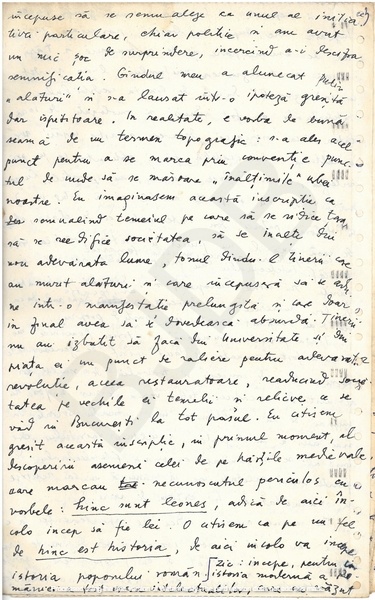 începuse să se semnaleze ca unul al iniția-
tivei particulare, chiar politic și am avut
un mic șoc de surprindere, încercînd a-i descifra
semnificația. Gîndul meu a alunecat puțin
„alături” și s-a lansat într-o ipoteză greșită
dar ispititoare. În realitate, e vorba de bună
seamă de un termen topografic: s-a ales acel
punct pentru a se marca prin convenție punc-
tul de unde să se măsoare „înălțimile” urbei
noastre. Eu imaginasem această inscripție ca
semnalînd temeiul pe care să se ridice
să se reedifice societatea, să se înalțe din
nou adevărata lume, tonul dîndu-l tinerii care
au murit alături și care începuseră să se
într-o manifestație prelungită și care doar
în final avea să se dovedească absurdă. Tinerii
nu au izbutit să facă din Universitate și din
piața ei un punct de raliere pentru adevărata
revoluție, aceea restauratoare, readucînd socie-
tatea pe vechile ei temelii și relieve, ce se
văd în București la tot pasul. Eu citisem
greșit această inscripție, în primul moment, al
descoperirii asemeni celei de pe hărțile medievale,
care marcau necunoscutul periculos cu
vorbele: hinc sunt leones, adică de aici în-
colo încep să fie lei. O citisem ca pe un fel
de hinc est historia, de aici încolo va începe
istoria poporului român [zic: începe, pentru că
istoria modernă a Ro-
mâniei